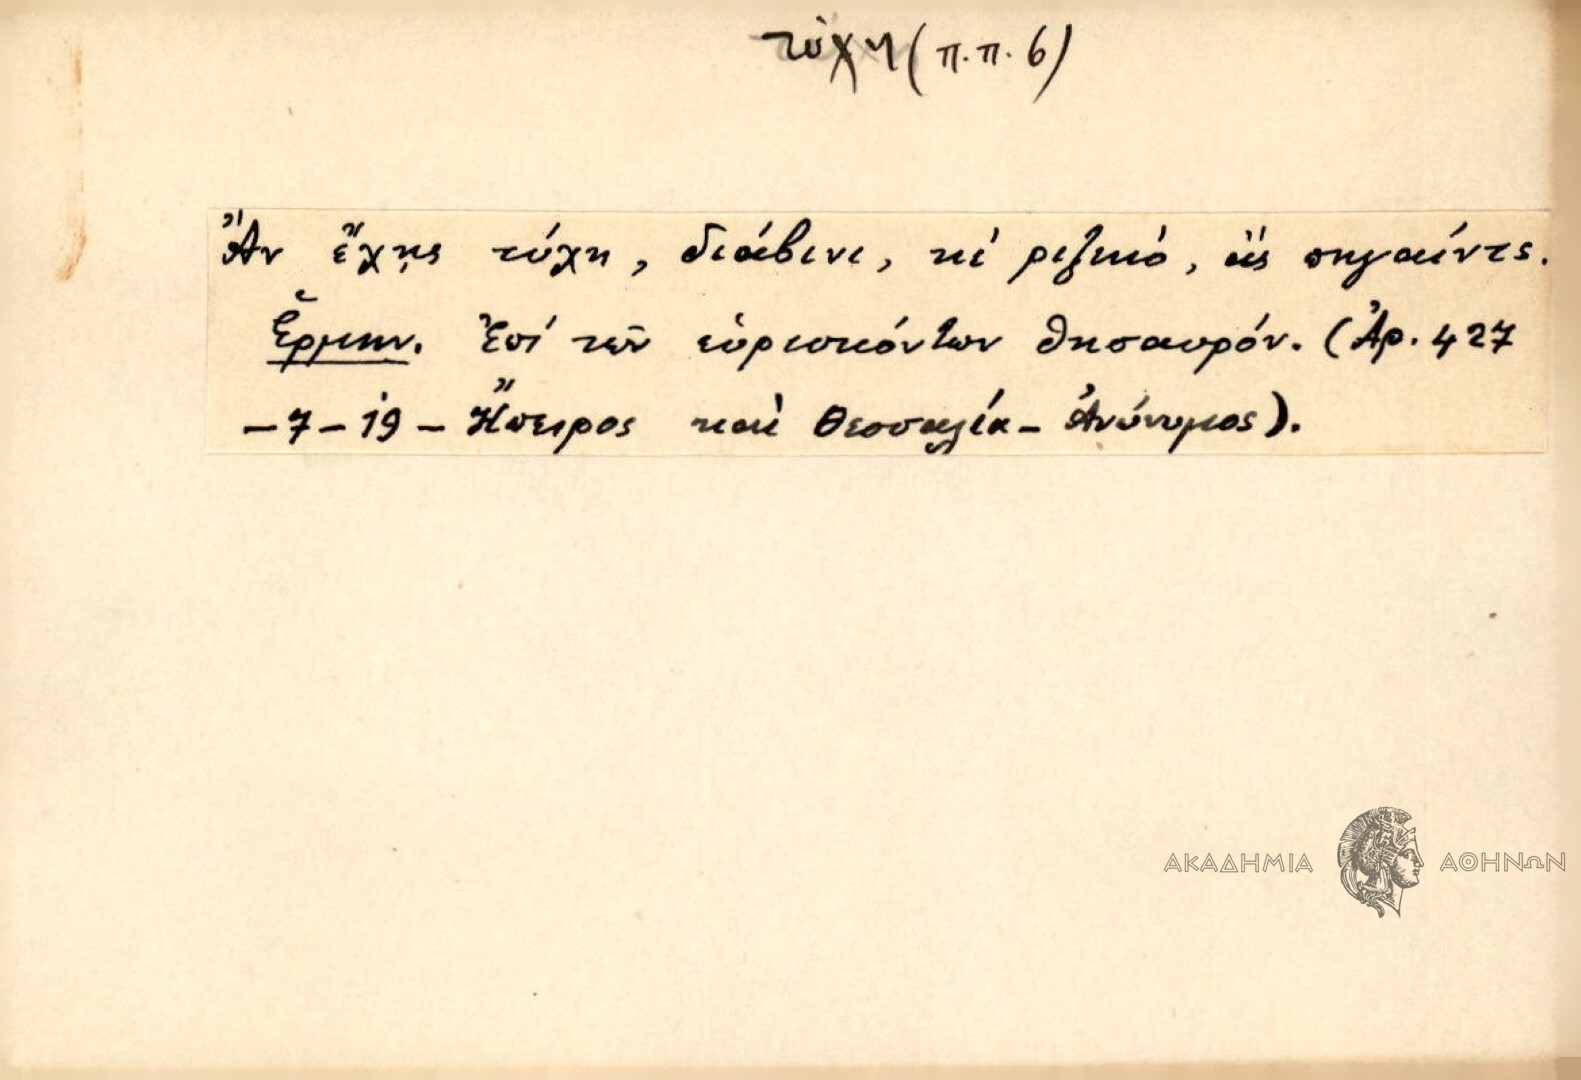 τύχη (π.π. 6)
Ἄν ἔχῃς τύχη, διάβινι, κὶ ριζικό, ἂς πηγαίντς.
Ἑρμην. Ἐπί τῶν εὑρισκόντων θησαυρόν. (Ἀρ. 427
-7-19- Ἤπειρος καὶ Θεσσαλία - Ἀνώνυμος).
ΑΚΑΔΗΜΙΑ ΑΘΗΝΩΝ